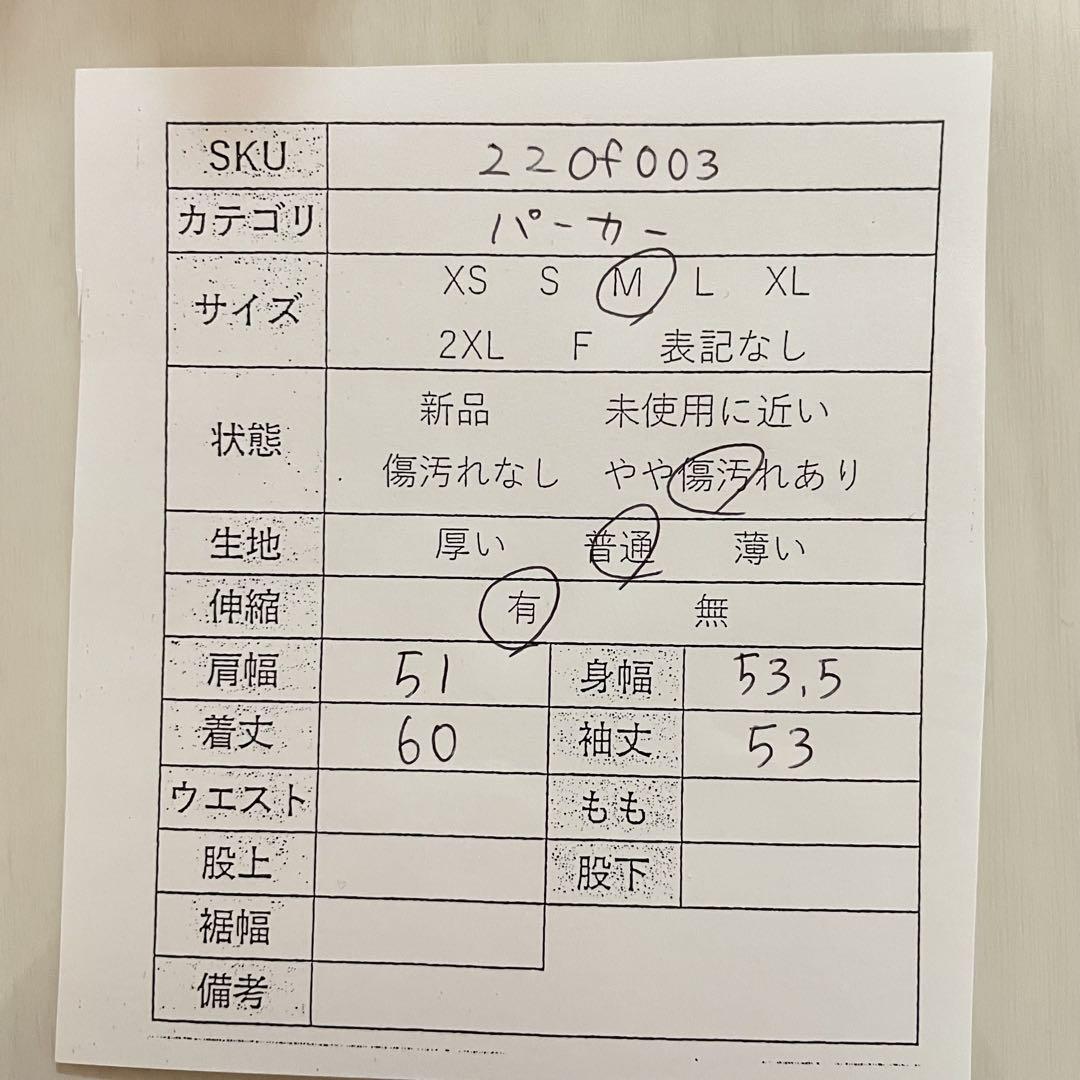 SKU 220f003
カテゴリ パーカー
サイズ XS S M L XL
2XL F 表記なし
状態 新品 未使用に近い
傷汚れなし やや傷汚れあり
生地 厚い 普通 薄い
伸縮 有 無
肩幅 51 身幅 53.5
着丈 60 袖丈 53
ウエスト もも
股上 股下
裾幅
備考